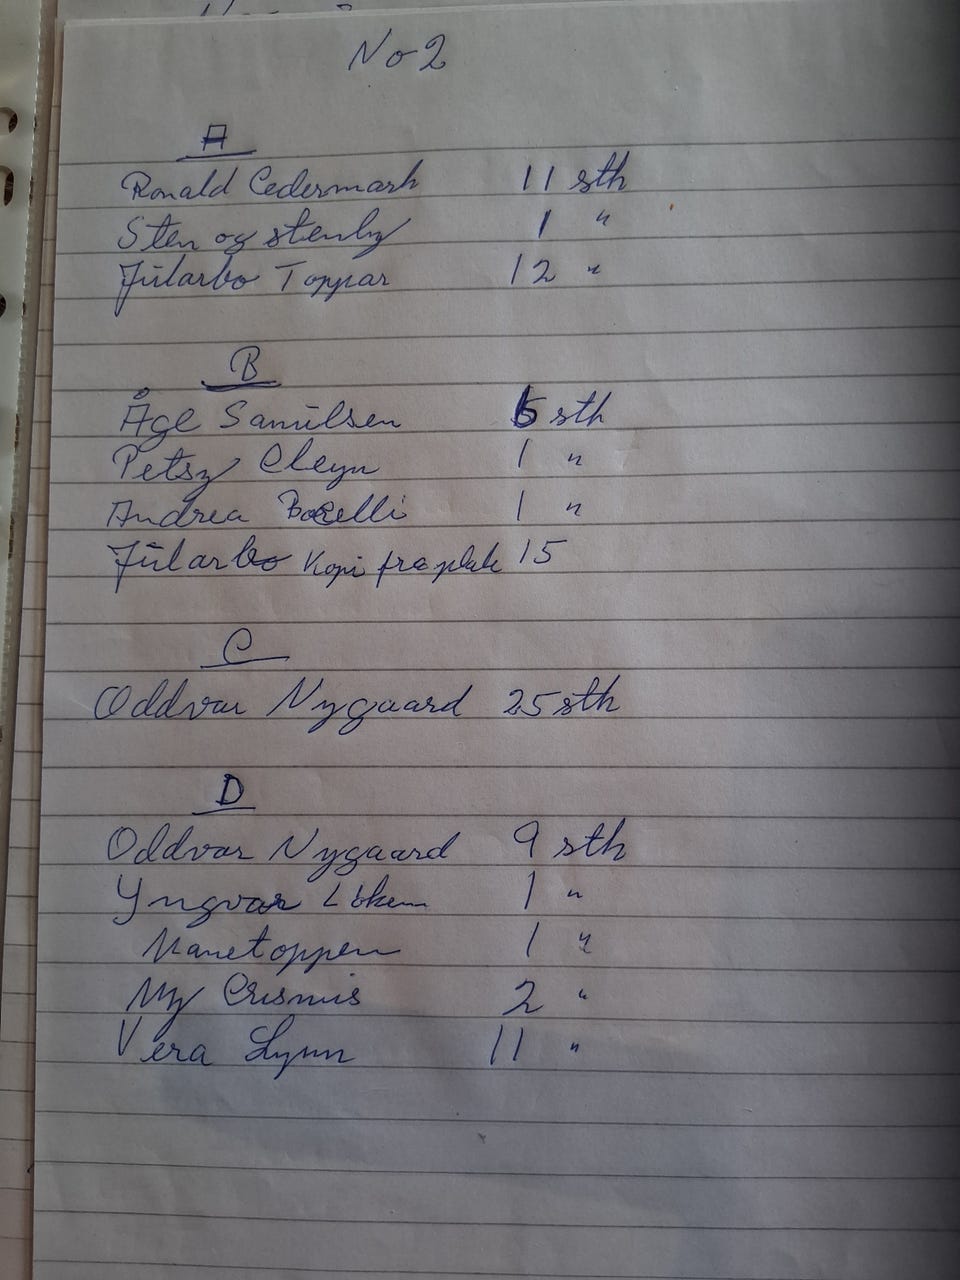 No 2
A
Ronald Cedermark 11 stk
Sten og stenly 1 "
Jularbo Toppar 12 "
B
Åge Samuelsen 6 stk
Petsy Cleyn 1 "
Andrea Bocelli 1 "
Jularbo Kopi fra plate 15
C
Oddvar Nygaard 25 stk
D
Oddvar Nygaard 9 stk
Yngvar 1 "
1 "
My 2 "
Vera Lynn 11 "